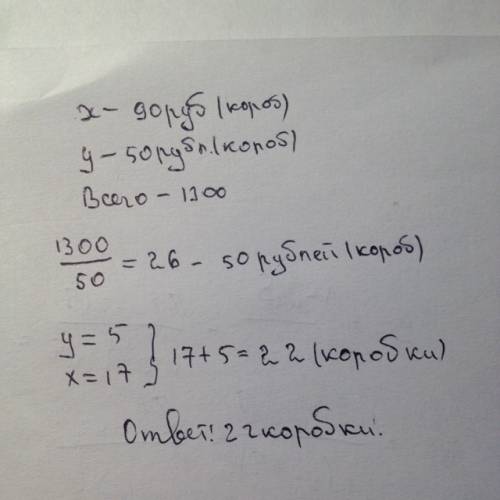 х – 90 руб (короб)
у – 50 рубл. (короб)
Всего – 1300
1300/50 = 26 – 50 рублей (короб)
у = 5
х = 17 } 17 + 5 = 22 (коробки)
Ответ! 22 коробки.